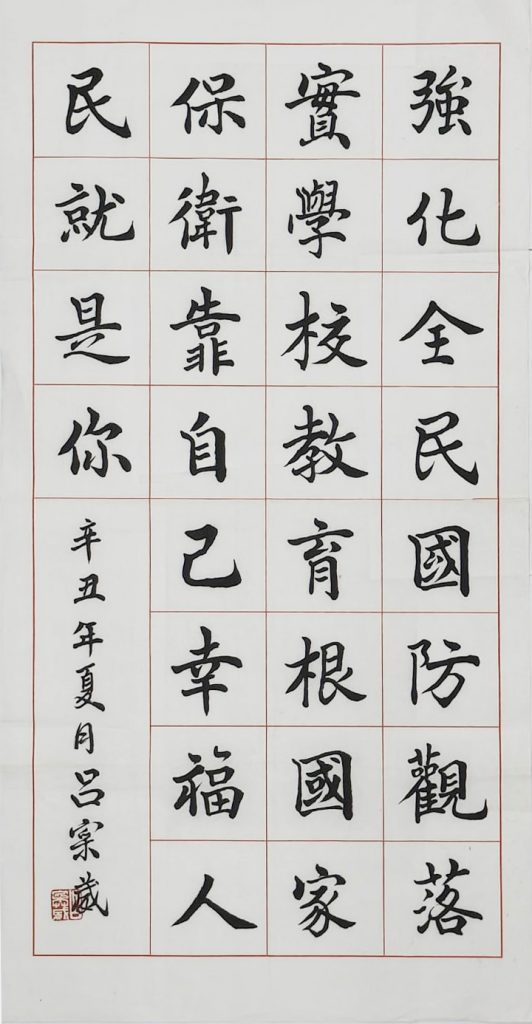 強化全民國防觀落
實學校教育根國家
保衛靠自己幸福人
民就是你
辛丑年夏月呂寀葳